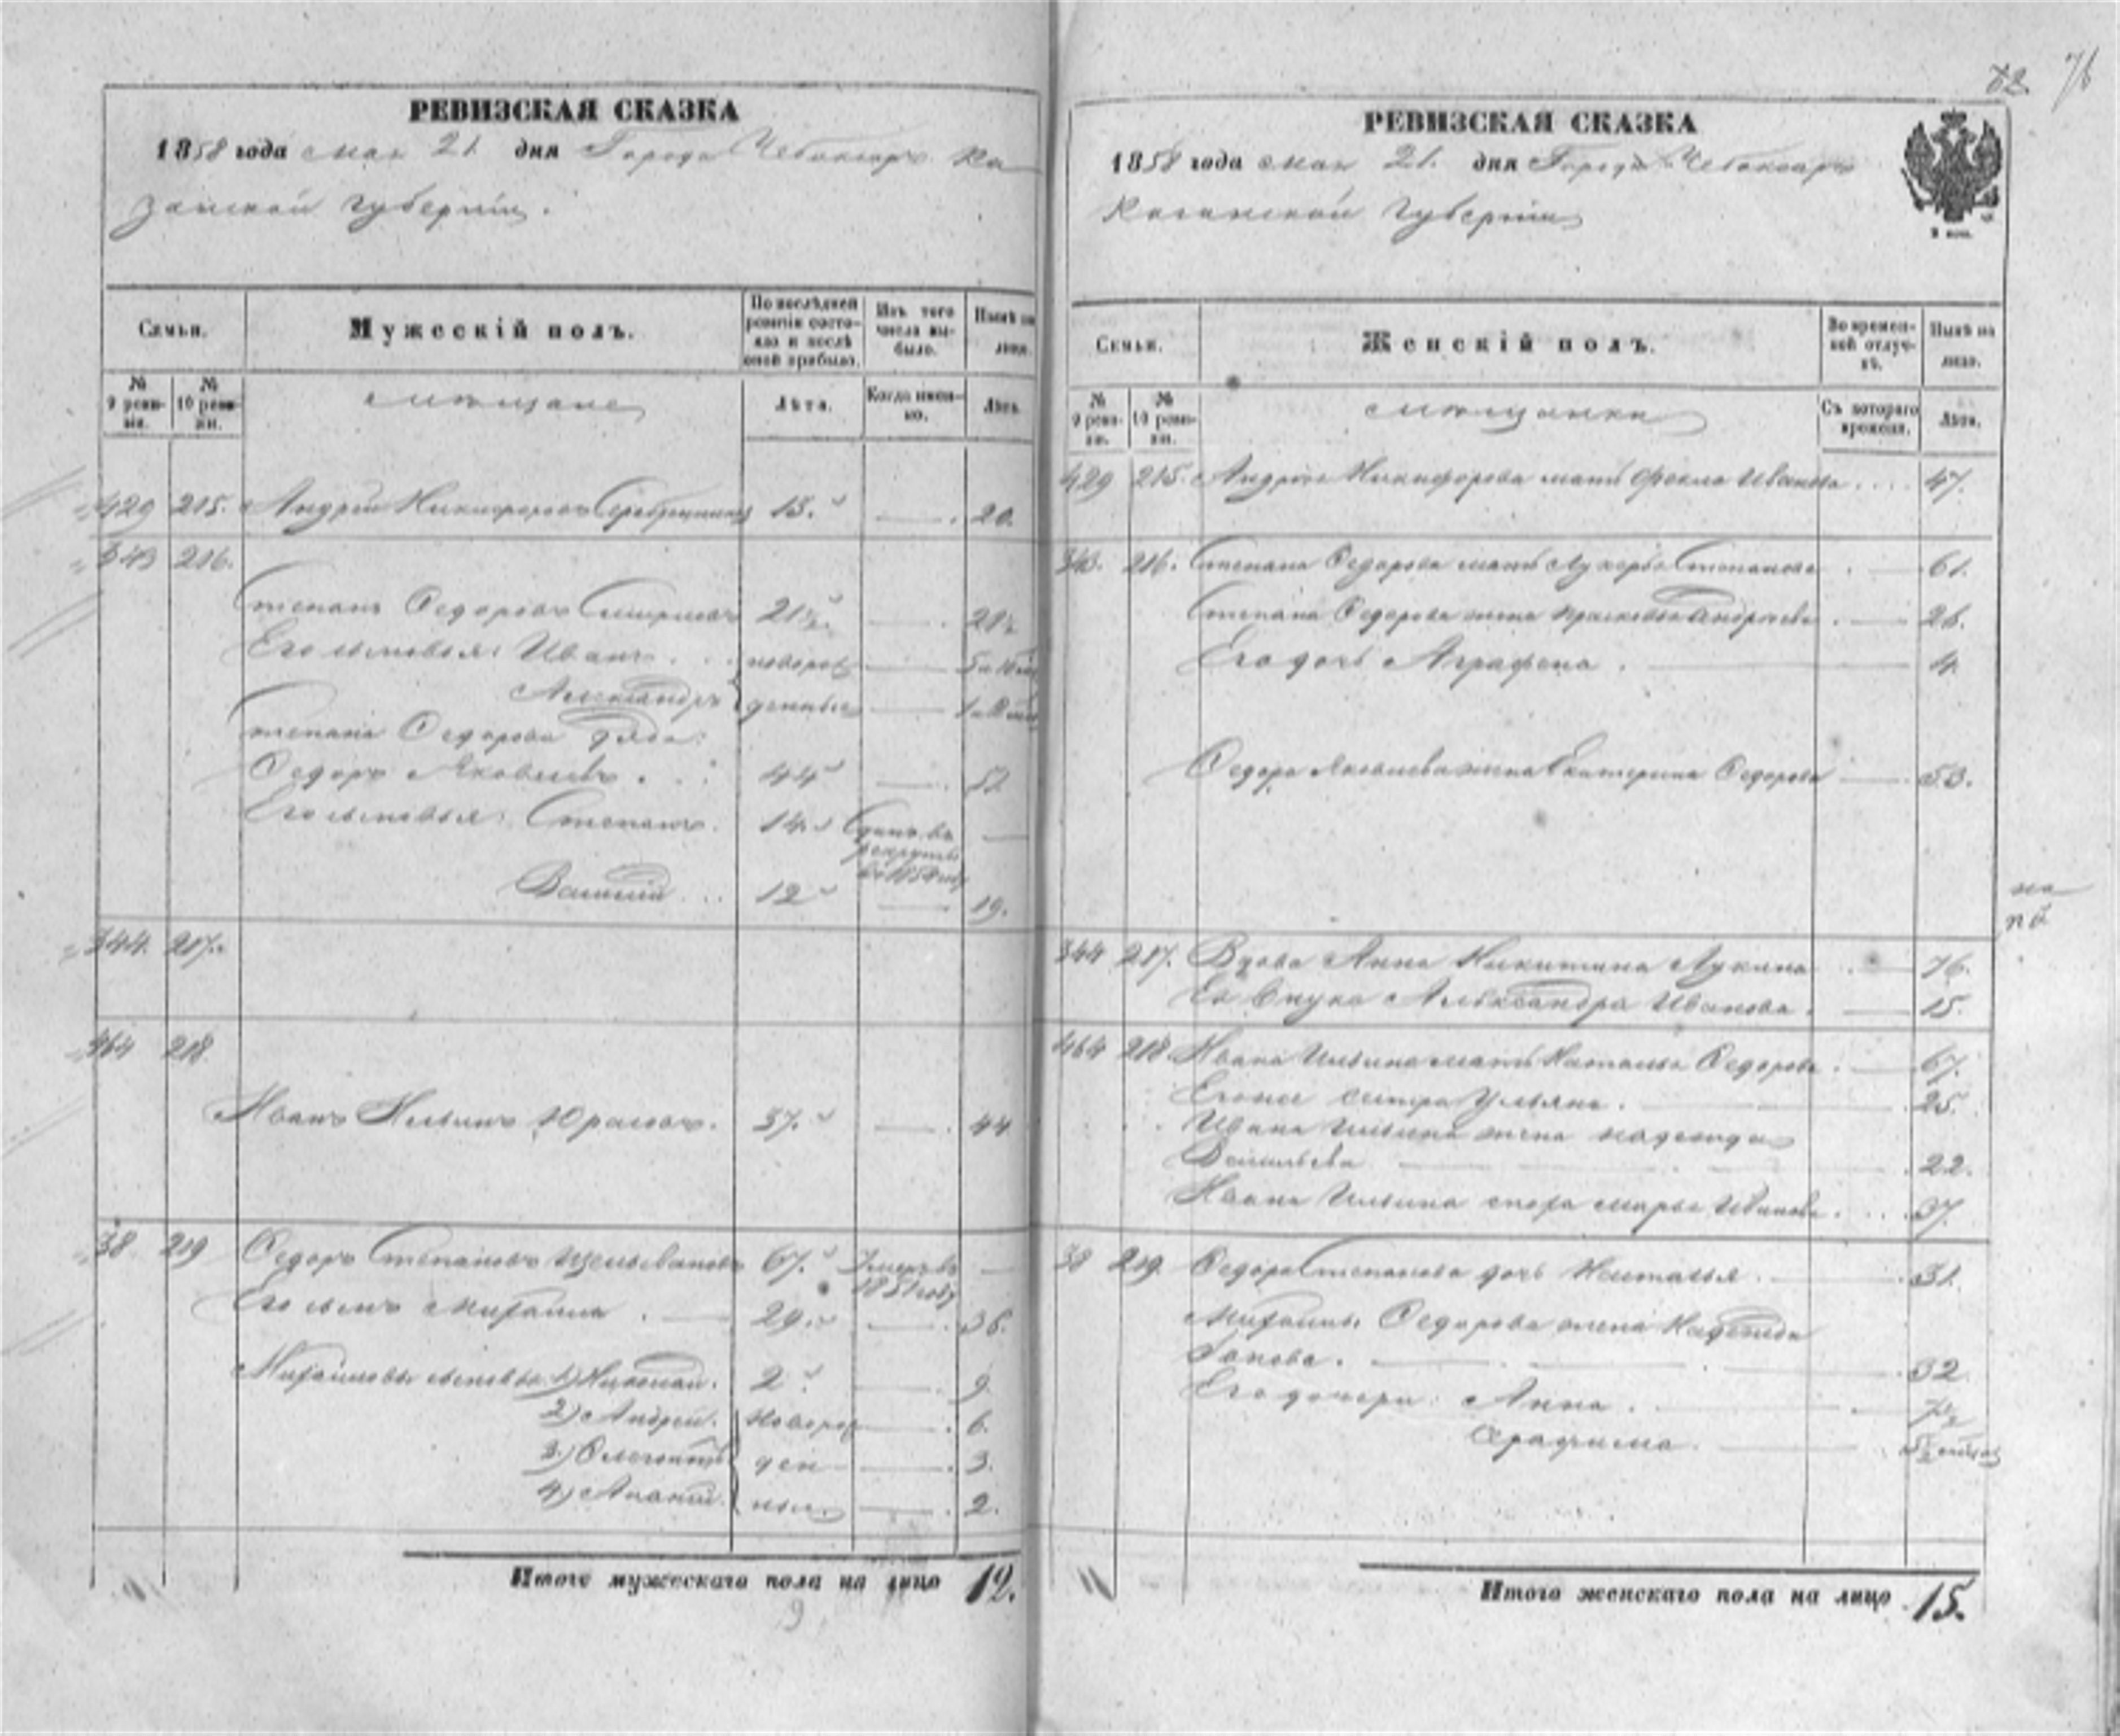 РЕВИЗСКАЯ СКАЗКА
1858 года мая 21 дня Города Чебоксаръ Ка
занской губерніи.
Семьи.
Мужескій полъ.
По послѣдней ревизіи состояло и послѣ оной прибыло.
Изъ того числа выбыло.
Нынѣ на лицо.
№ 9 ревизіи.
№ 10 ревизіи.
мѣщане
Лѣта.
Когда именно.
Лѣта.
429 215. Андрей Никифоровъ Серебренниковъ 13. 20.
343 216.
Степанъ Федоровъ Смирновъ 21½ 28½
Его сыновья: Иванъ новорож
Александръ денные
Степана Федорова дядя:
Федоръ Яковлевъ. 44 51
Его сыновья: Степанъ. 14 Сданъ въ
рекруты
Василій 12 19.
344. 217.
464 218
Иванъ Ильинъ Юрасовъ. 37. 44
38 219 Федоръ Степановъ 67. Умеръ въ
1851 году
Его сынъ Михаила 29. 36.
Михайловы сыновья 1) Николай. 2 9.
2) Андрей. новорож 6.
3) ден 3.
4) Ананій. ные. 2.
Итого мужескаго пола на лицо 12.
9
72 76
РЕВИЗСКАЯ СКАЗКА
1858 года мая 21. дня Города Чебоксаръ
Казанской Губерніи
Семьи.
Женскій полъ.
Во временной отлучкѣ.
Нынѣ на лицо.
№ 9 ревизіи.
№ 10 ревизіи.
мѣщанки
Съ котораго времени.
Лѣта.
429 215. Андрея Никифорова мать Фекла Иванова 47.
343. 216. Степана Федорова мать Лукерья Степанова 61.
Степана Федорова жена Прасковья Андреева 26.
Его дочь Аграфена. 4.
Федора Яковлева жена Екатерина Федорова 53.
344 217. Вдова Анна Никитина Лукина 76.
Ея внука Александра Иванова. 15.
464 218. Ивана Ильина мать Наталья Федорова 67.
Его же сестра Ульяна. 25.
Ивана Ильина жена Надежда
Васильева 22.
Ивана Ильина сноха Марья Иванова. 37.
38 219. Федора Степанова дочь Наталья 31.
Михайлы Федорова жена Надежда
32
Его дочери: Анна. 7½
Серафима.
Итого женскаго пола на лицо 15.